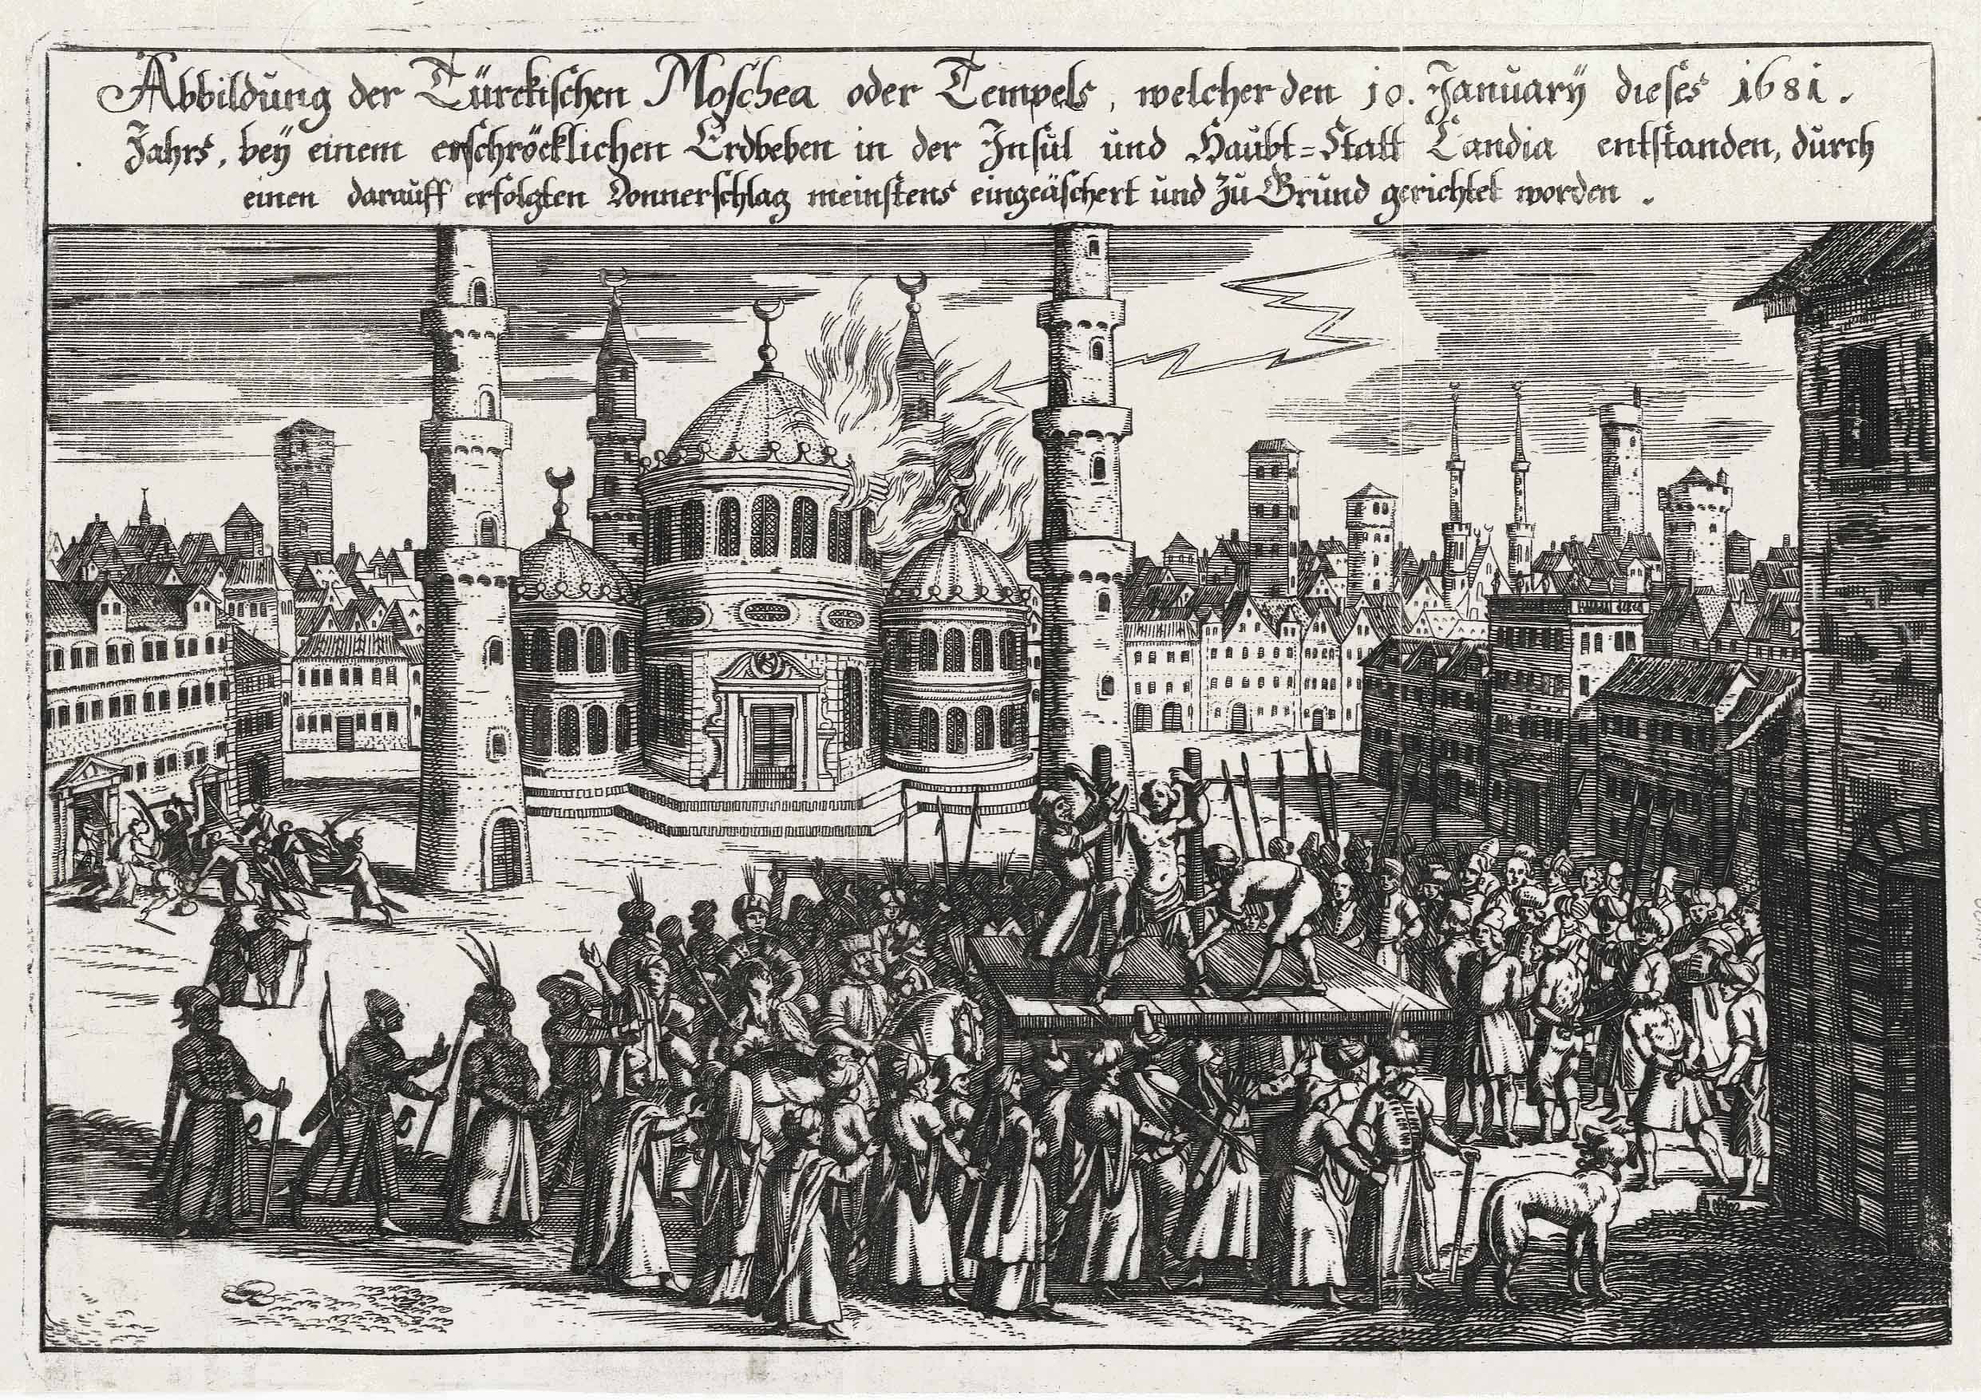 Abbildung der Türckischen Moschea oder Tempels, welcher den 10. Januarÿ dieses 1681.
Jahrs, beÿ einem erschröcklichen Erdbeben in der Insul und Haubt=Statt Candia entstanden, durch
einen darauff erfolgten Donnerschlag meinstens eingeäschert und zu Grund gerichtet worden.